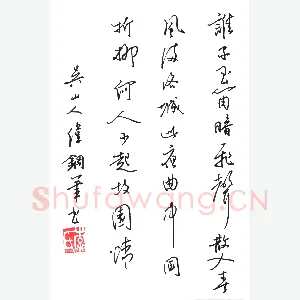 誰家玉笛暗飛聲散入春
風滿洛城此夜曲中聞
折柳何人不起故園情
吳山人鋼筆書
Shufawang.CN